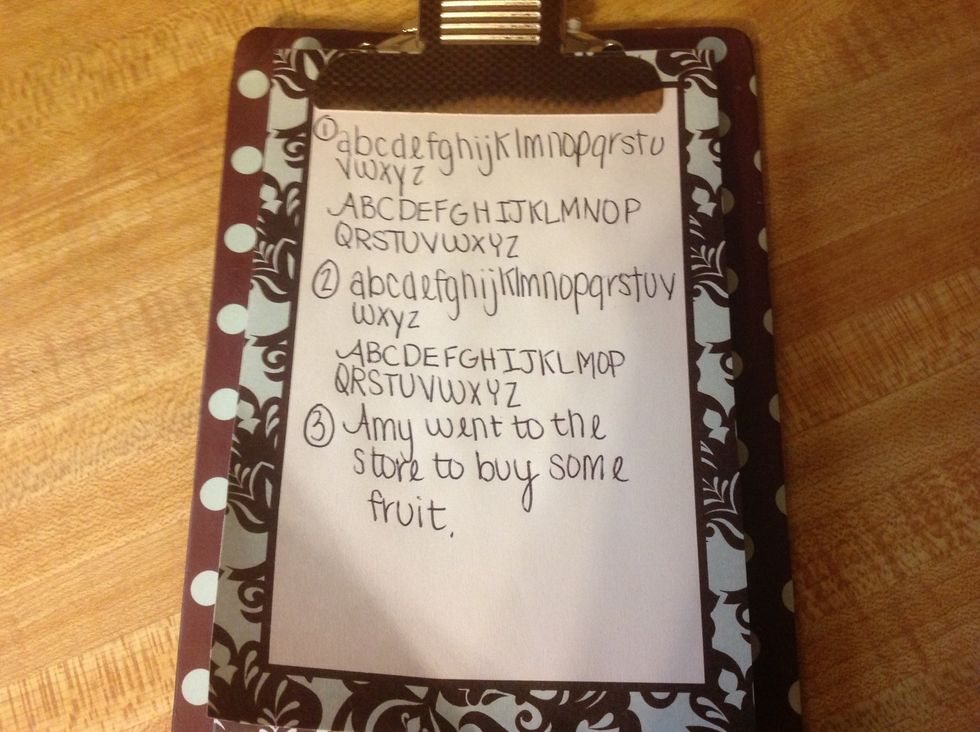 ① abcdefghijklmnopqrstu
vwxyz
ABCDEFGHIJKLMNOP
QRSTUVWXYZ
② abcdefghijklmnopqrstuv
wxyz
ABCDEFGHIJKLMOP
QRSTUVWXYZ
③ Amy went to the
store to buy some
fruit.